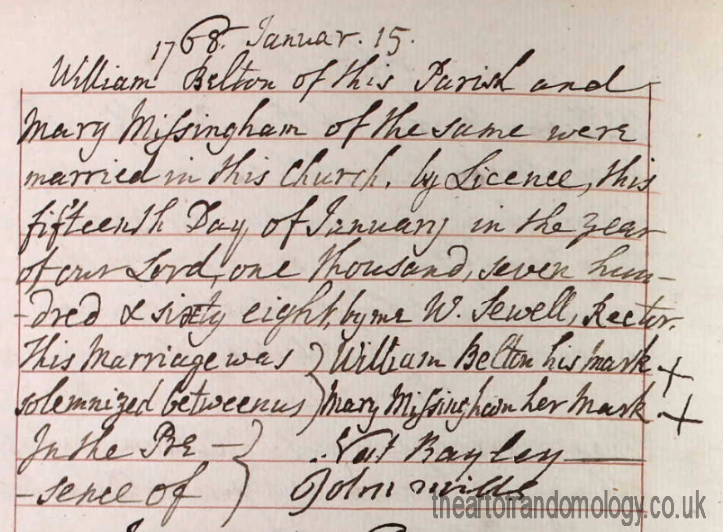 1768. Januar. 15.
William Belton of this Parish and
Mary Missingham of the same were
married in this Church, by Licence, this
fifteenth Day of January in the year
of our Lord, one thousand, seven hun-
-dred & sixty eight, by me W. Sewell, Rector.
This Marriage was } William Belton his mark +
solemnized between us } Mary Missingham her Mark +
In the Pre- } Nat Bayley
-sence of } John
theartofrandomology.co.uk